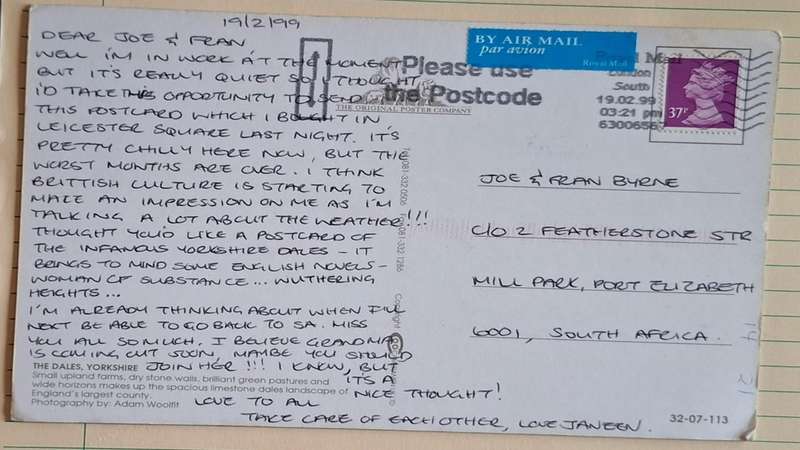 19/2/99
DEAR JOE & FRAN
WELL I'M IN WORK AT THE MOMENT
BUT IT'S REALLY QUIET SO I THOUGHT
I'D TAKE THIS OPPORTUNITY TO SEND
THIS POSTCARD WHICH I BOUGHT IN
LEICESTER SQUARE LAST NIGHT. IT'S
PRETTY CHILLY HERE NOW, BUT THE
WORST MONTHS ARE OVER. I THINK
BRITTISH CULTURE IS STARTING TO
MAKE AN IMPRESSION ON ME AS I'M
TALKING A LOT ABOUT THE WEATHER!!!
THOUGHT YOU'D LIKE A POSTCARD OF
THE INFAMOUS YORKSHIRE DALES - IT
BRINGS TO MIND SOME ENGLISH NOVELS -
WOMAN OF SUBSTANCE... WUTHERING
HEIGHTS...
I'M ALREADY THINKING ABOUT WHEN I'LL
NEXT BE ABLE TO GO BACK TO SA. MISS
YOU ALL SO MUCH. I BELIEVE GRANDMA
IS COMING OUT SOON, MAYBE YOU SHOULD
JOIN HER!!! I KNOW, BUT
IT'S A
NICE THOUGHT!
LOVE TO ALL
TAKE CARE OF EACHOTHER, LOVE JANEEN.
THE DALES, YORKSHIRE
Small upland farms, dry stone walls, brilliant green pastures and
wide horizons makes up the spacious limestone dales landscape of
England's largest county.
Photography by: Adam Woolfit
THE ORIGINAL POSTER COMPANY
Tel 081-332 0506 Fax 081-332 1286
Copyright
Please use
the Postcode
BY AIR MAIL
par avion
Royal Mail
Royal Mail
London
South
19.02.99
03:21 pm
6300656
37P
JOE & FRAN BYRNE
C/O 2 FEATHERSTONE STR
MILL PARK, PORT ELIZABETH
6001, SOUTH AFRICA.
32-07-113